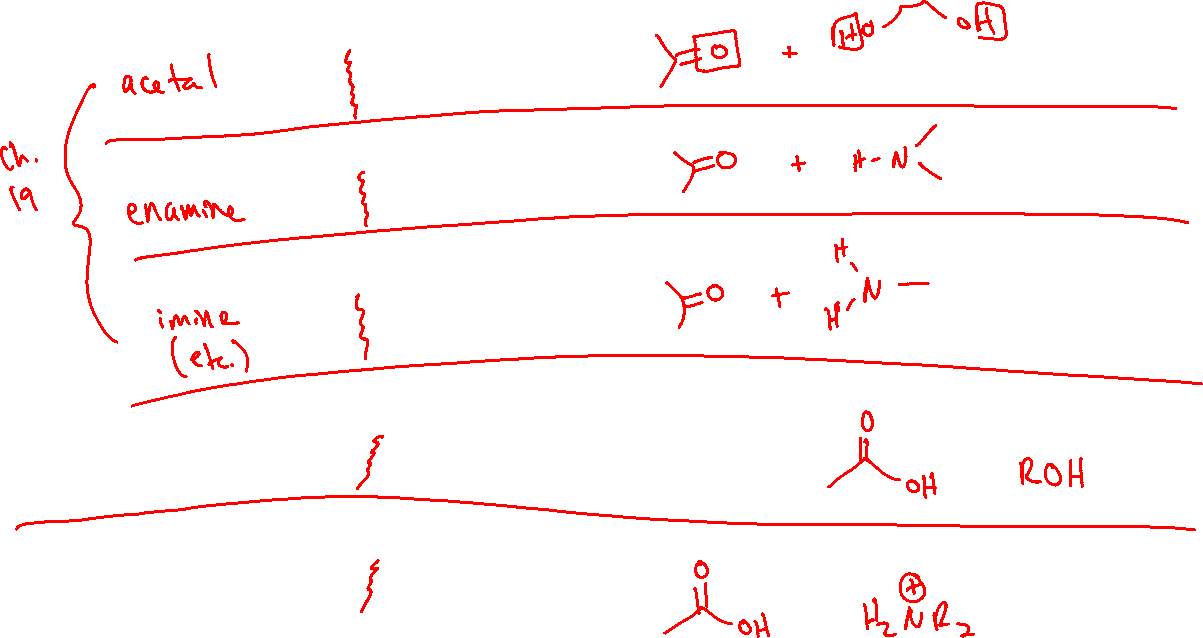 acetal O + HO OH
Ch. 19
enamine O + H-N
imine (etc.) O + H H N
O OH ROH
O OH H₂NR₂ +